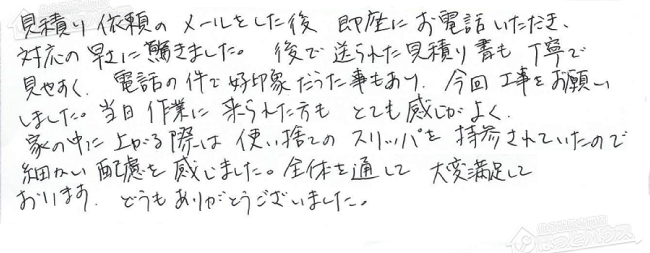 見積り依頼のメールをした後 即座にお電話いただき、
対応の早さに驚きました。後で送られた見積り書も丁寧で
見やすく、電話の件で好印象だった事もあり、今回工事をお願い
しました。当日作業に来られた方も とても感じがよく、
家の中に上がる際は 使い捨てのスリッパを持参されていたので
細かい配慮を感じました。全体を通して 大変満足して
おります。どうもありがとうございました。